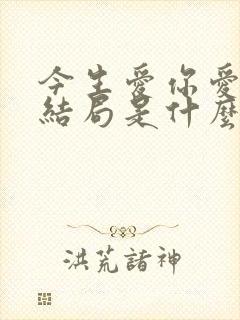 今生愛你愛
結局是什麼
洪荒諸神